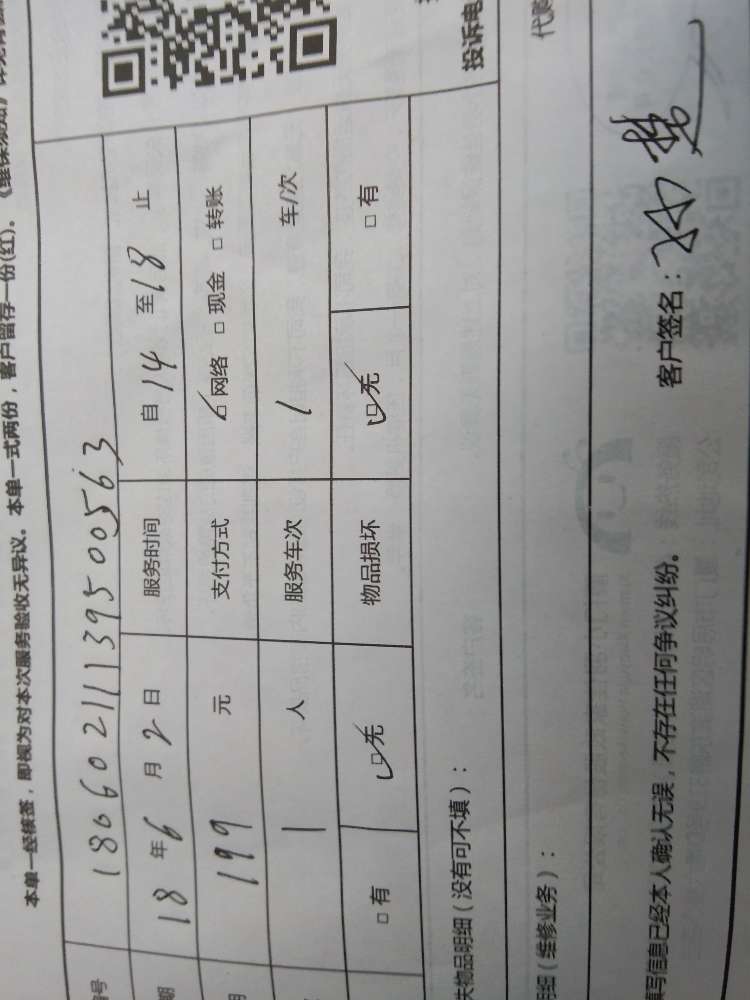 本单一经核签，即视为对本次服务验收无异议。本单一式两份，客户留存一份(红)。《维保须知》详见背
编号 18060211139500563
期 18年6月2日 服务时间 自14至18止
用 199元 支付方式 ☑网络 □现金 □转账
1人 服务车次 1 车/次
□有 ☑无 物品损坏 ☑无 □有
投诉电
失物品明细（没有可不填）：
明细（维修业务）： 代购
填写信息已经本人确认无误，不存在任何争议纠纷。 客户签名：